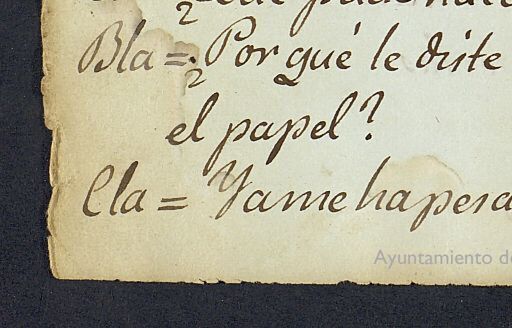 Bla = ¿Por qué le diste
el papel?
Cla = Ya me ha pesa
Ayuntamiento d